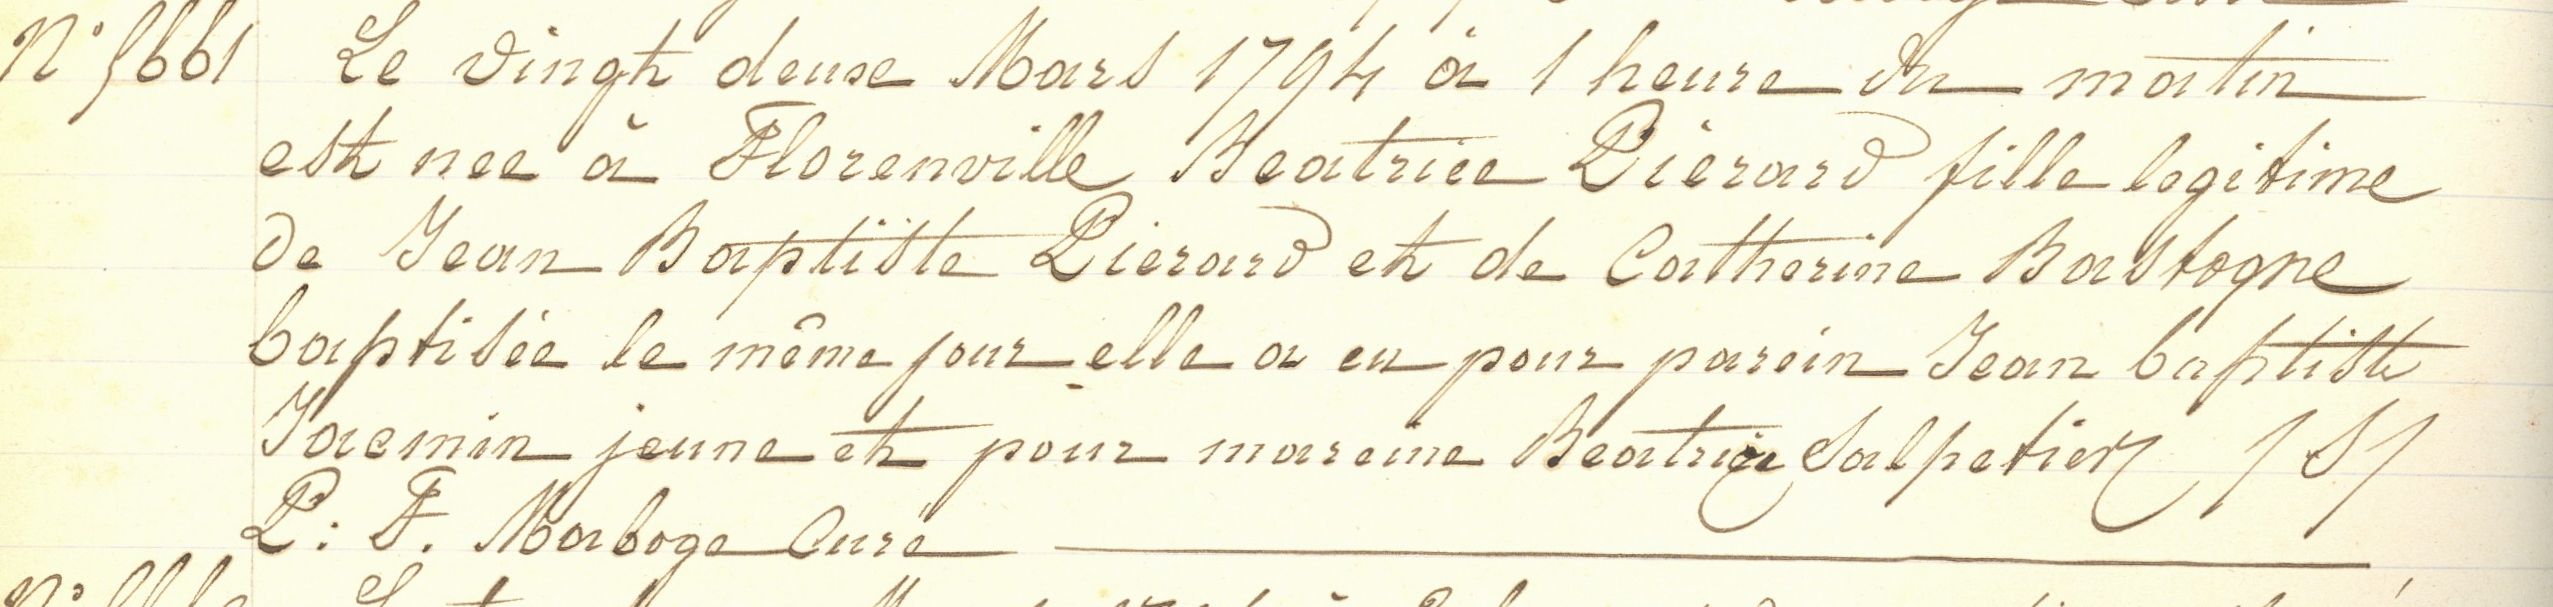 N° 5661 Le vingt deuxe Mars 1794 à 1 heure du matin
est nee à Florenville Beatrice Piérard fille legitime
de Jean Baptiste Pierard et de Catherine Bastogne
baptisée le même jour elle a eu pour parein Jean baptiste
Jacmin jeune et pour mareine Beatrice Salpetier /S/
P: F. Maboge Curé